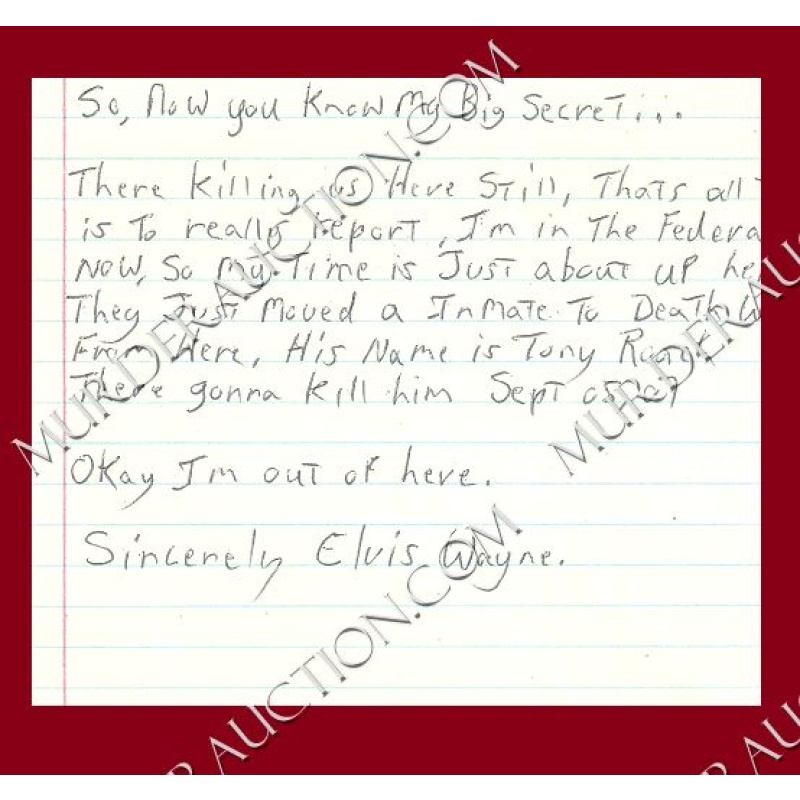 So, Now you Know My Big Secret...
There Killing us Here Still, Thats all
is To really report, I'm in The Federa
Now, So My Time is Just about up he
They Just Moved a Inmate To Death
From Here, His Name is Tony
There gonna Kill him Sept
Okay I'm out of here.
Sincerely Elvis Wayne.
MURDERAUCTION.COM
MURDERAU
RAUCTION.COM